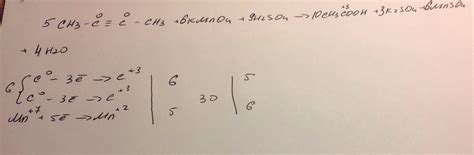 5 CH3 - C⁰ ≡ C⁰ - CH3 + 6KMnO4 + 9H2SO4 → 10CH3C⁺³OOH + 3K2SO4 + 6MnSO4
+ 4H2O
6 { C⁰ - 3ē → C⁺³ | 6 | 5
C⁰ - 3ē → C⁺³ | 30 |
Mn⁺⁷ + 5ē → Mn⁺² | 5 | 6